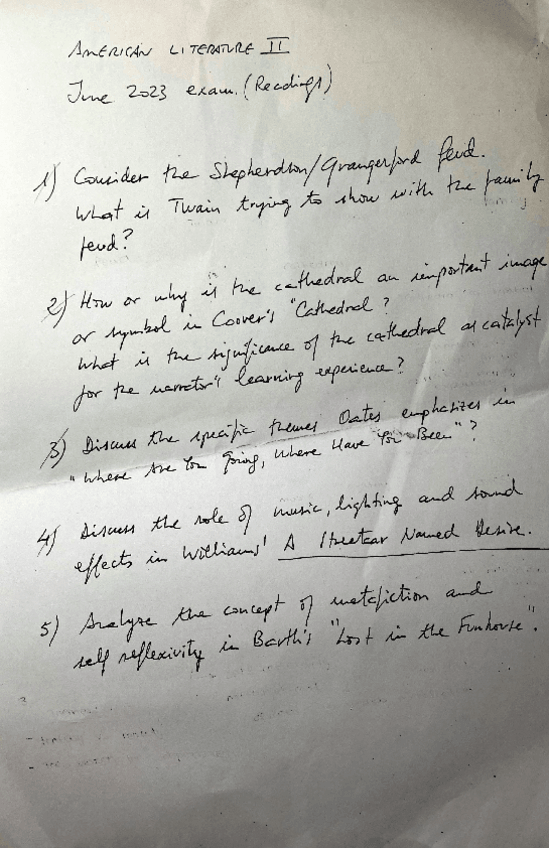 AMERICAN LITERATURE II
June 2023 exam. (Readings)
1) Consider the Shepherdson/Grangerford feud.
What is Twain trying to show with the family
feud?
2) How or why is the cathedral an important image
or symbol in Coover's "Cathedral?
What is the significance of the cathedral as catalyst
for the narrator's learning experience?
3) Discuss the specific themes Oates emphasizes in
"Where Are You Going, Where Have You Been"?
4) Discuss the role of music, lighting and sound
effects in Williams' A Streetcar Named Desire.
5) Analyze the concept of metafiction and
self reflexivity in Barth's "Lost in the Funhouse".